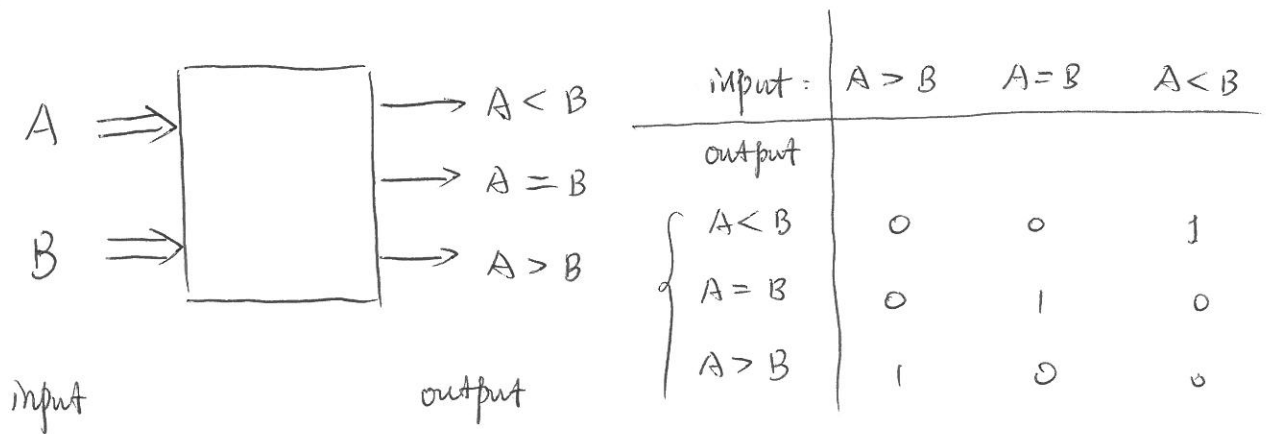 A
B
A < B
A = B
A > B
input
output
input: A > B A = B A < B
output
A < B 0 0 1
A = B 0 1 0
A > B 1 0 0